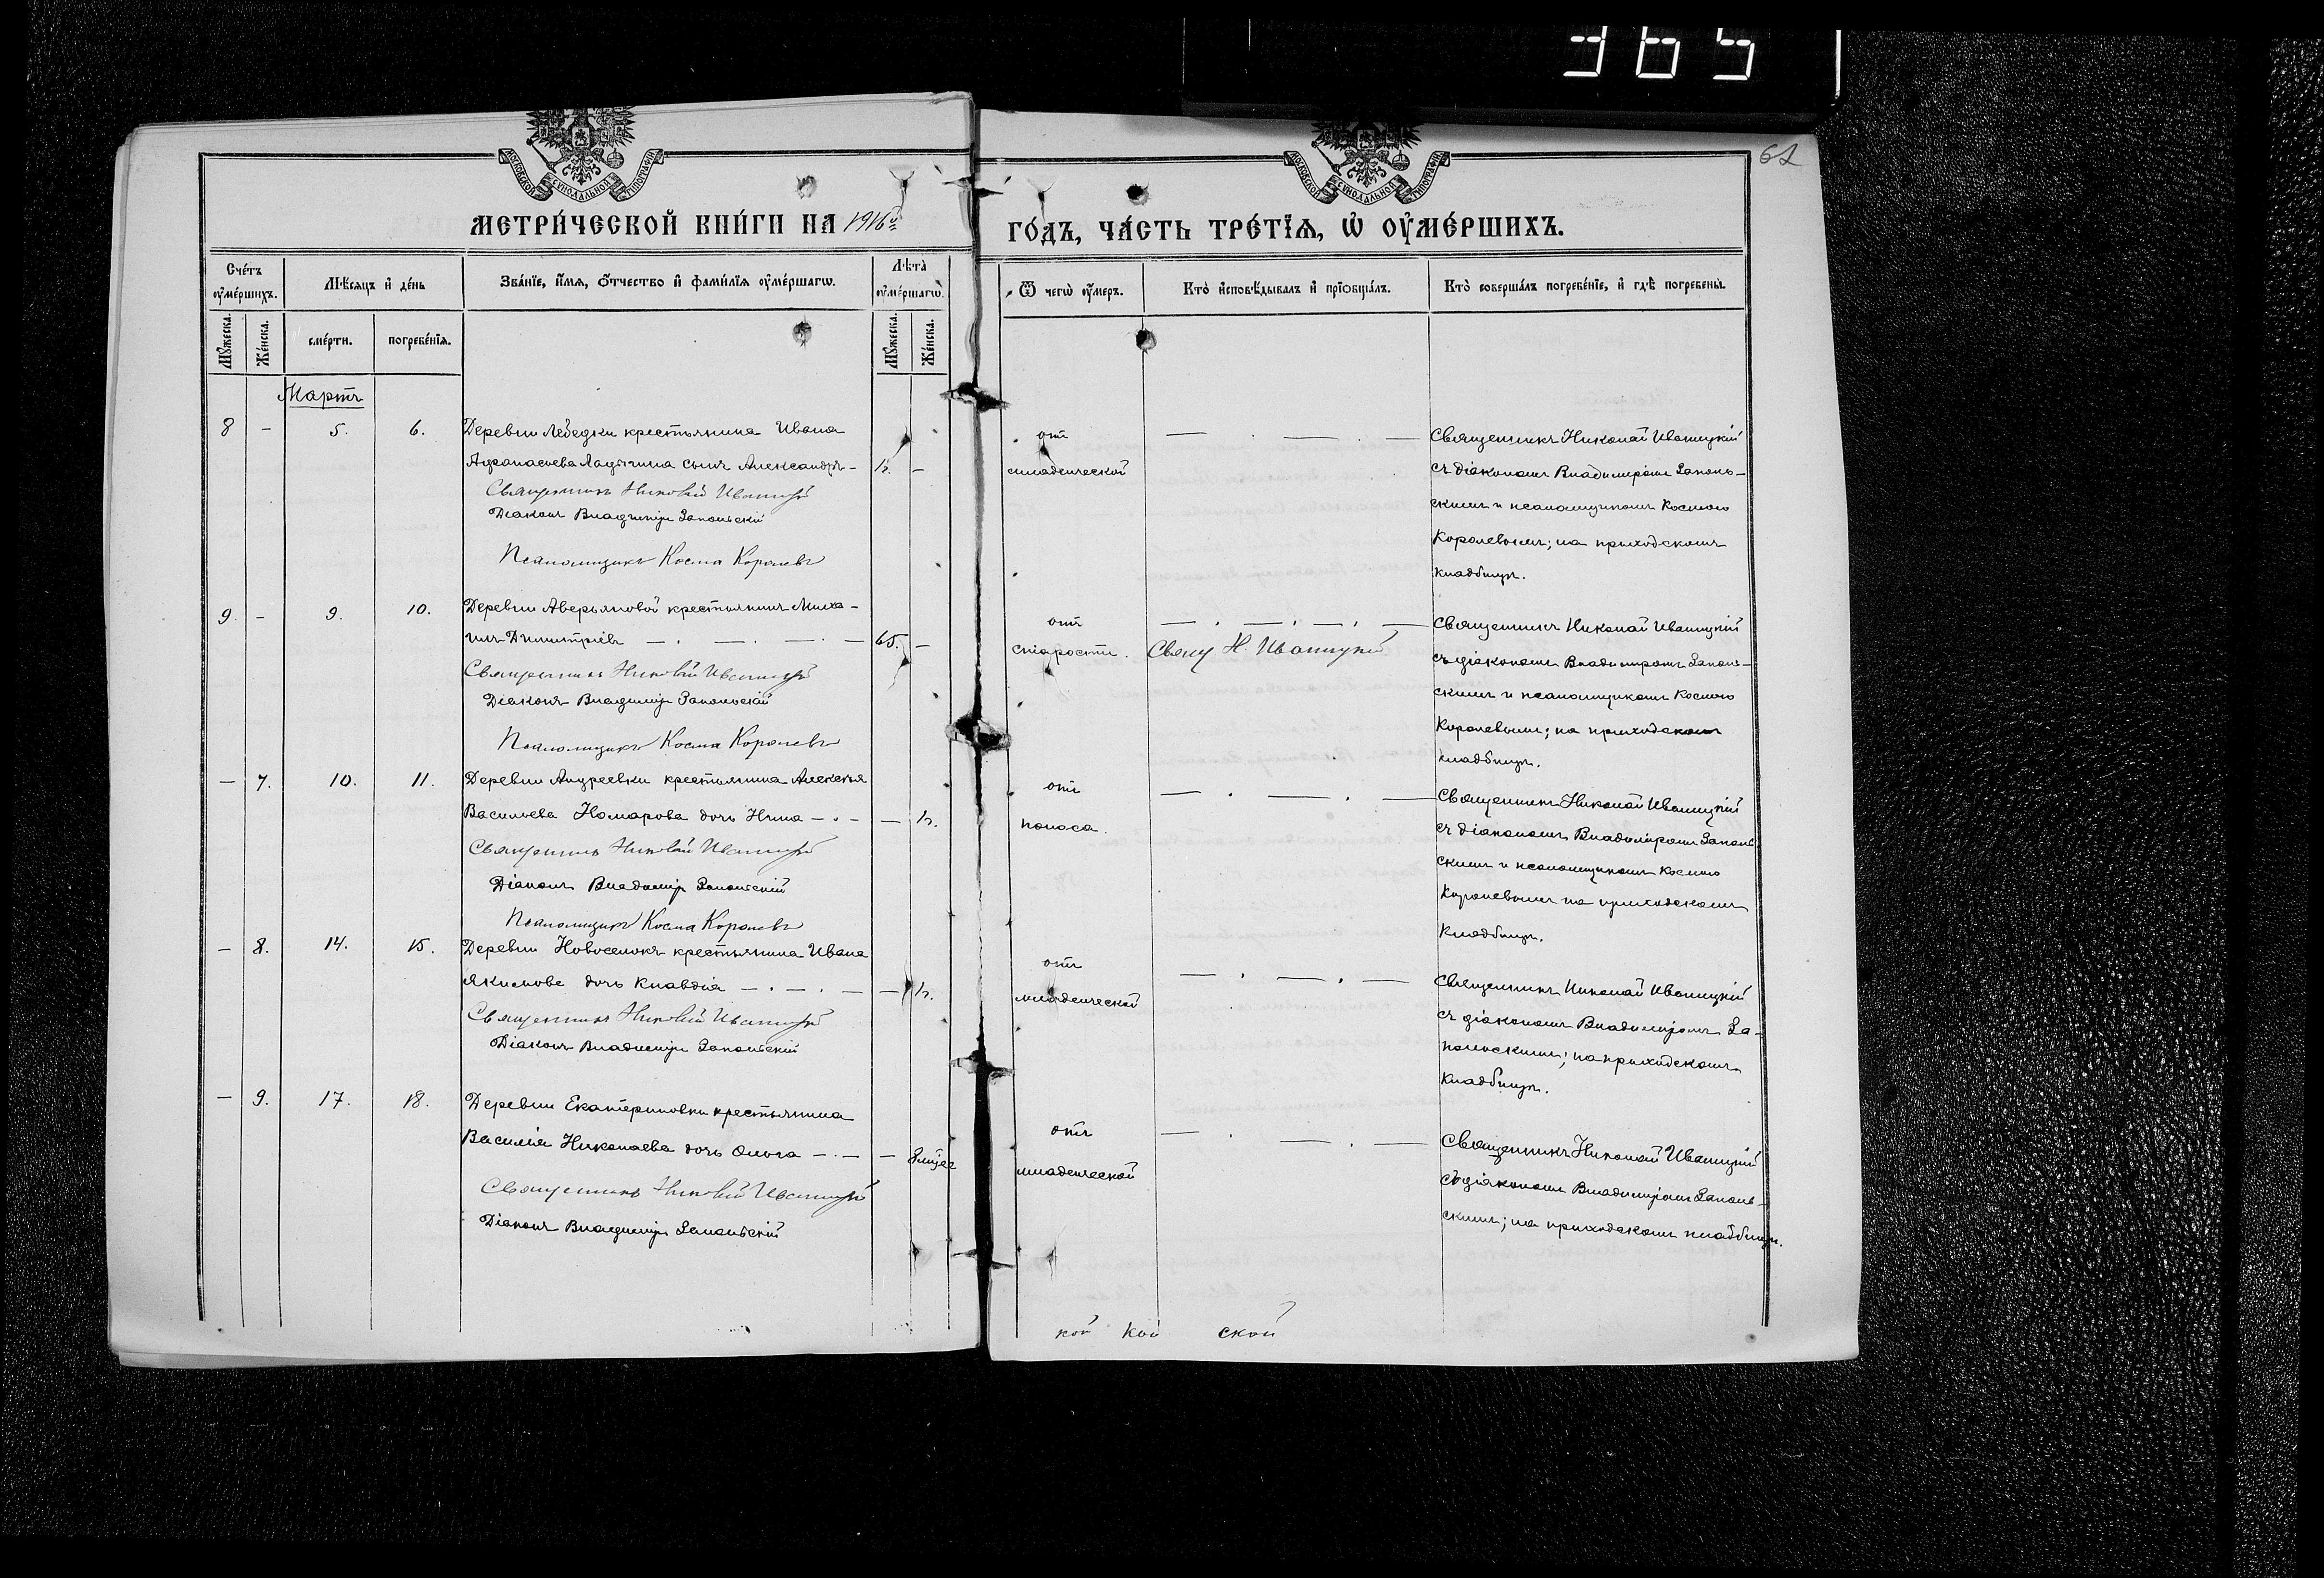 365
62
МОСКОВСКОЙ СѴНОДАЛЬНОЙ ТИПОГРАФІИ
МОСКОВСКОЙ СѴНОДАЛЬНОЙ ТИПОГРАФІИ
МЕТРИ́ЧЕСКОЙ КНИ́ГИ НА 1916й
ГО́ДЪ, ЧА́СТЬ ТРЕ́ТЇѦ, Ѡ҆ ОУ҆МЕ́РШИХЪ.
Сче́тъ оу҆ме́ршихъ.
Мѣ́сяцъ и҆ де́нь
Зва́нїе, и҆́мя, ѻ҆́тчество и҆ фами́лїя оу҆ме́ршагѡ.
Лѣта̀ оу҆ме́ршагѡ.
Ѿ чегѡ̀ оу҆́меръ.
Кто̀ и҆сповѣ́дывалъ и҆ прїѻбща́лъ.
Кто̀ соверша́лъ погребе́нїе, и҆ гдѣ̀ погребены̀.
Мꙋ́жеска.
Же́нска.
сме́рти.
погребе́нїѧ.
Мꙋ́жеска.
Же́нска.
Мартъ
8 - 5. 6. Деревни Лебедки крестьянина Ивана
Афанасьева Ладыгина сынъ Александръ -
Священникъ Николай Иваницкій
Діаконъ Владиміръ Запольскій
Псаломщикъ Косма Королевъ
отъ
младенческой
Священникъ Николай Иваницкій
съ діакономъ Владиміромъ Заполь-
скимъ и псаломщикомъ Космою
Королевымъ; на приходскомъ
кладбищѣ.
9 - 9. 10. Деревни Аверьяновой крестьянинъ Миха-
илъ Димитріевъ - 65. -
Священникъ Николай Иваницкій
Діаконъ Владиміръ Запольскій
Псаломщикъ Косма Королевъ
отъ
старости.
Свящ Н. Иваницкій
Священникъ Николай Иваницкій
съ діакономъ Владиміромъ Заполь-
скимъ и псаломщикомъ Космою
Королевымъ; на приходскомъ
кладбищѣ.
- 7. 10. 11. Деревни Андреевки крестьянина Алексѣя
Васильева Комарова дочь Нина - . -
Священникъ Николай Иваницкій
Діаконъ Владиміръ Запольскій
Псаломщикъ Косма Королевъ
отъ
поноса.
Священникъ Николай Иваницкій
съ діакономъ Владиміромъ Заполь
скимъ и псаломщикомъ Космою
Королевымъ на приходскомъ
кладбищѣ.
- 8. 14. 15. Деревни Новоселокъ крестьянина Ивана
Якимова дочь Клавдія - . - . -
Священникъ Николай Иваницкій
Діаконъ Владиміръ Запольскій
отъ
младенческой
Священникъ Николай Иваницкій
съ діакономъ Владиміромъ За-
польскимъ; на приходскомъ
кладбищѣ.
- 9. 17. 18. Деревни Екатериновки крестьянина
Василія Николаева дочь Ольга - . - -
Священникъ Николай Иваницкій
Діаконъ Владиміръ Запольскій
отъ
младенческой
Священникъ Николай Иваницкій
съ діакономъ Владиміромъ Заполь-
скимъ; на приходскомъ кладбищѣ.
кой кой ской